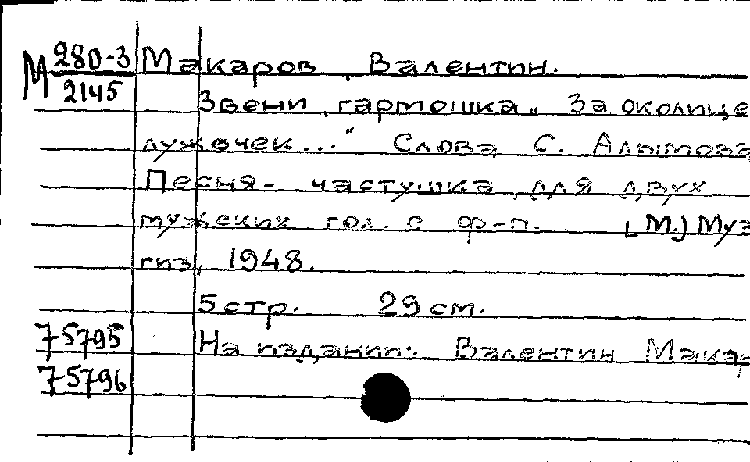 М 280-3
2145
Макаров, Валентин.
Звени, гармошка. "За околице
лужочек..." Слова С. Алымова
Песня-частушка для двух
мужских гол. с ф-п. [М.] Муз
гиз, 1948.
5 стр. 29 см.
75795
На издании: Валентин Макар
75796